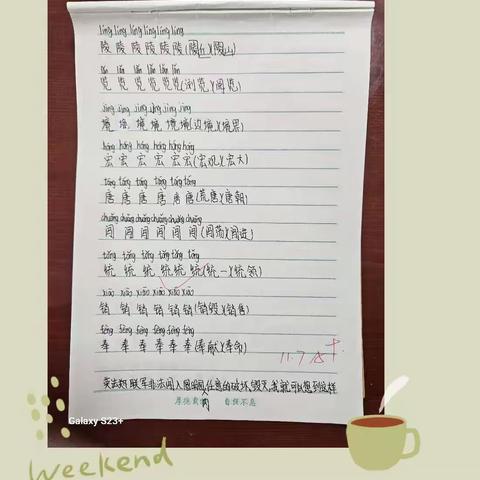 líng líng líng líng líng líng
陵 陵 陵 陵 陵 陵(陵丘)(陵山)
lǎn lǎn lǎn lǎn lǎn lǎn
览 览 览 览 览 览(浏览)(阅览)
jìng jìng jìng jìng jìng jìng
境 境 境 境 境(边境)(境界)
hóng hóng hóng hóng hóng hóng
宏 宏 宏 宏 宏 宏(宏观)(宏大)
táng táng táng táng táng táng
唐 唐 唐 唐 唐 唐(荒唐)(唐朝)
chuǎng chuǎng chuǎng chuǎng chuǎng chuǎng
闯 闯 闯 闯 闯 闯(闯荡)(闯进)
tǒng tǒng tǒng tǒng tǒng tǒng
统 统 统 统 统 统(统一)(统领)
xiāo xiāo xiāo xiāo xiāo xiāo
销 销 销 销 销 销(销毁)(销售)
fèng fèng fèng fèng fèng fèng
奉 奉 奉 奉 奉 奉(奉献)(奉命)
11.7
英法联军非法闯入圆明园,任意的破坏,毁灭,我就可以想到这样
厚德载物 自强不息
Galaxy S23+
weekend